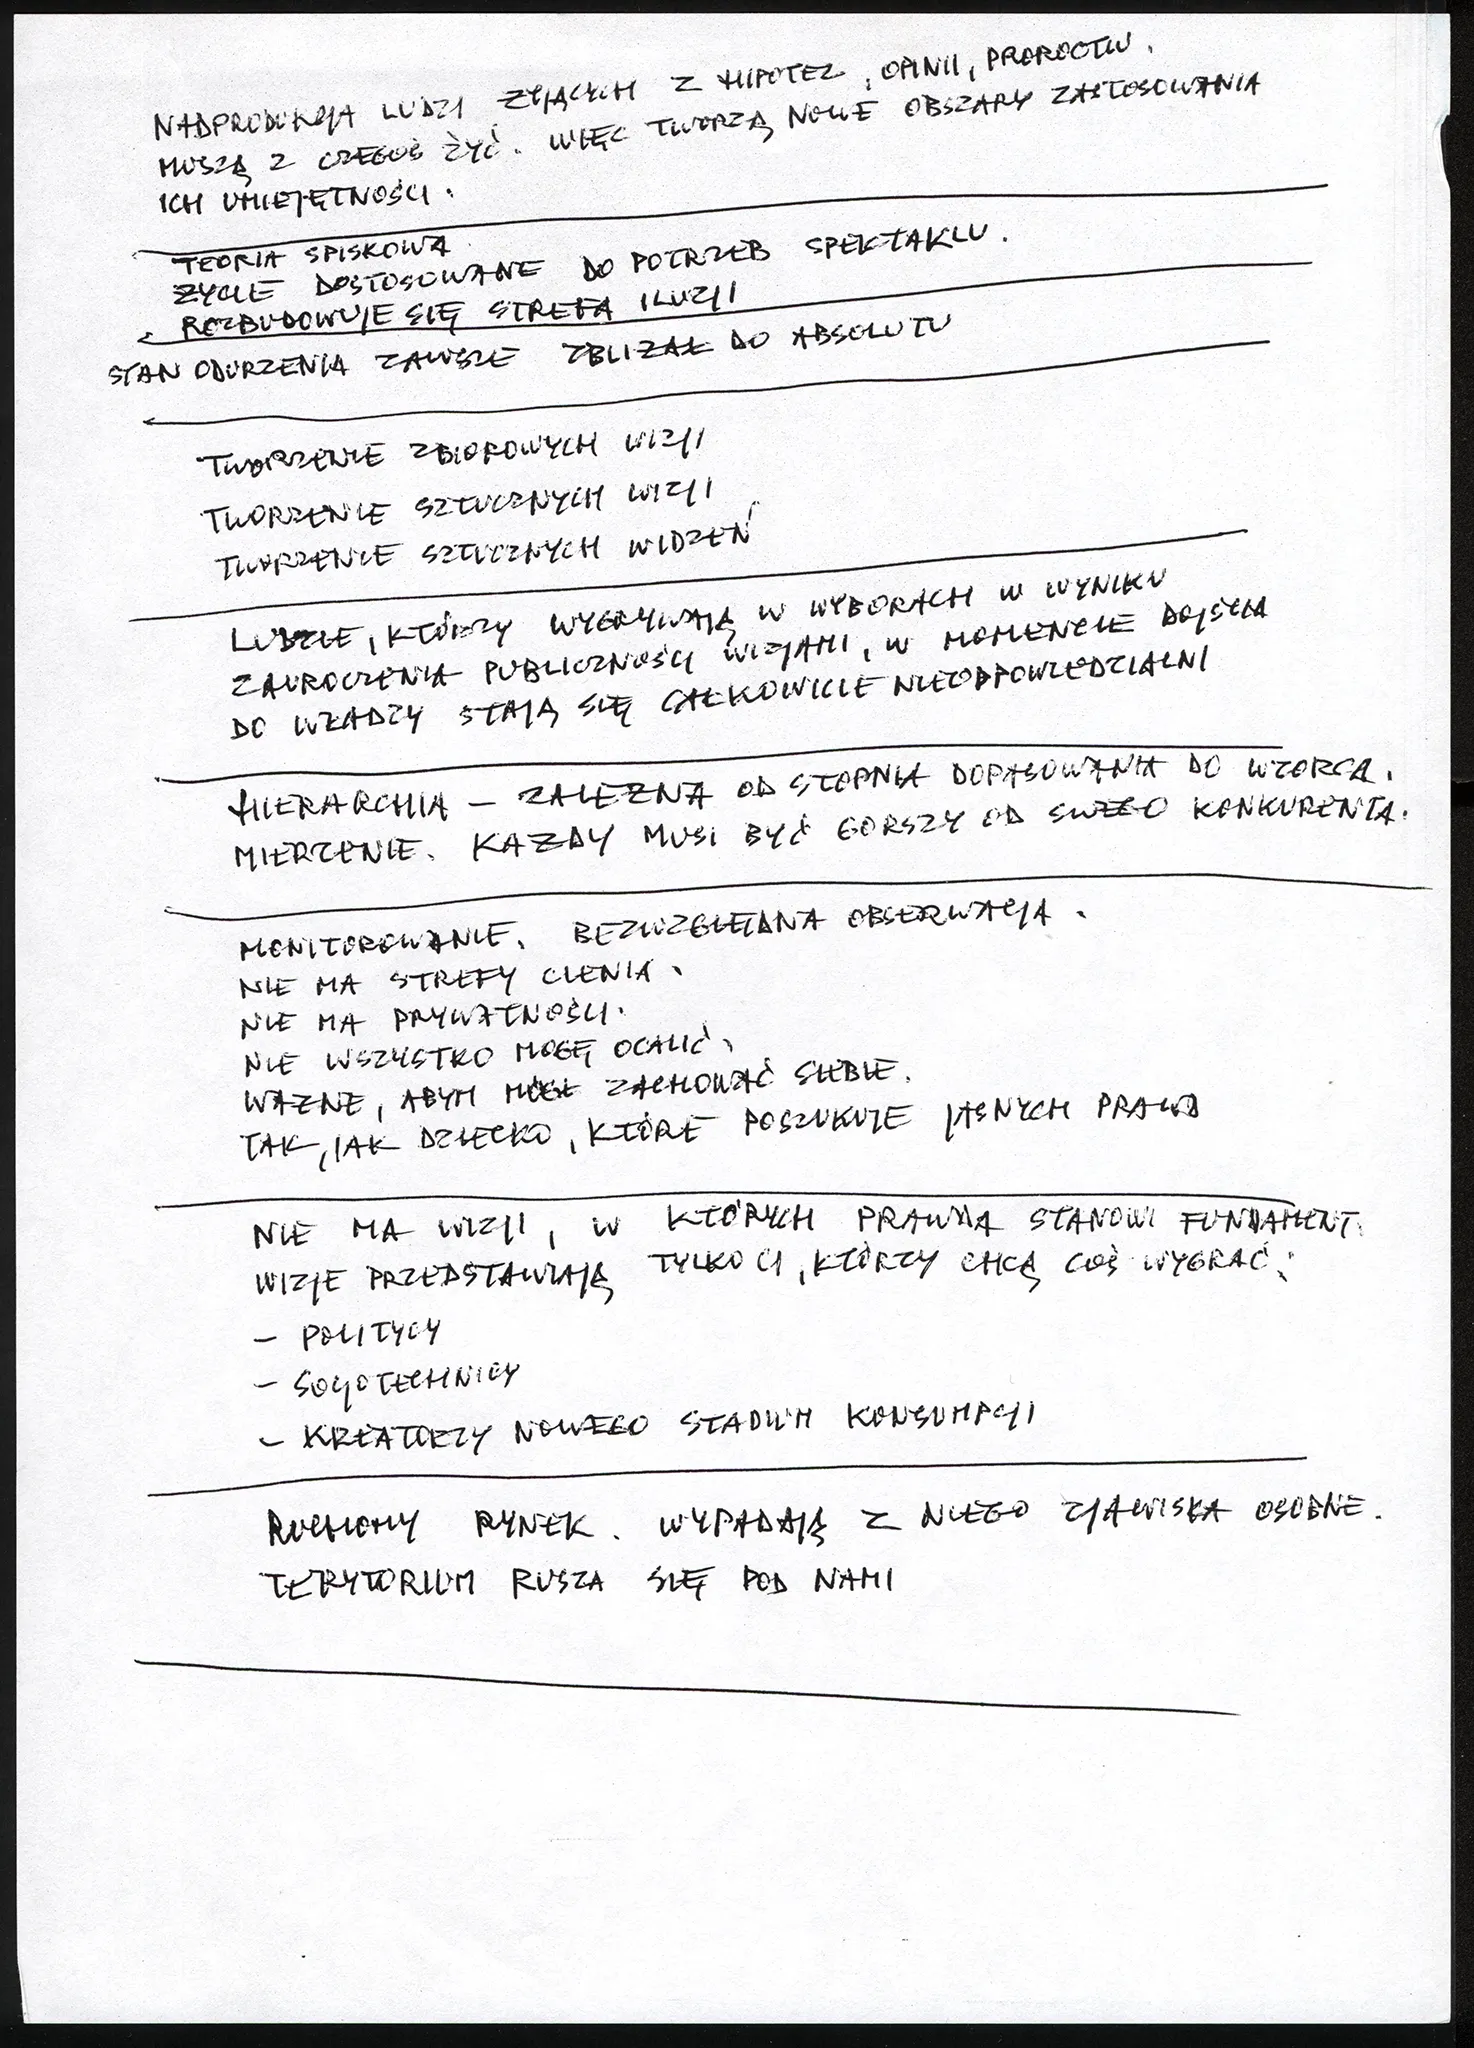 NADPRODUKCJA LUDZI ŻYJĄCYCH Z HIPOTEZ, OPINII, PROROCTW.
MUSZĄ Z CZEGOŚ ŻYĆ. WIĘC TWORZĄ NOWE OBSZARY ZASTOSOWANIA
ICH UMIEJĘTNOŚCI.
TEORIA SPISKOWA
ŻYCIE DOSTOSOWANE DO POTRZEB SPEKTAKLU.
ROZBUDOWUJE SIĘ STREFA ILUZJI
STAN ODURZENIA ZAWSZE ZBLIŻAŁ DO ABSOLUTU
TWORZENIE ZBIOROWYCH WIZJI
TWORZENIE SZTUCZNYCH WIZJI
TWORZENIE SZTUCZNYCH WIDZEŃ
LUDZIE, KTÓRZY WYGRYWAJĄ W WYBORACH W WYNIKU
ZAUROCZENIA PUBLICZNOŚCI WIZJAMI, W MOMENCIE DOJŚCIA
DO WŁADZY STAJĄ SIĘ CAŁKOWICIE NIEODPOWIEDZIALNI
HIERARCHIA – ZALEŻNA OD STOPNIA DOPASOWANIA DO WZORCA.
MIERZENIE. KAŻDY MUSI BYĆ GORSZY OD SWEGO KONKURENTA.
MONITOROWANIE. BEZWZGLĘDNA OBSERWACJA.
NIE MA STREFY CIENIA.
NIE MA PRYWATNOŚCI.
NIE WSZYSTKO MOGĘ OCALIĆ.
WAŻNE, ABYM MÓGŁ ZACHOWAĆ SIEBIE.
TAK, JAK DZIECKO, KTÓRE POSZUKUJE JASNYCH PRAWD
NIE MA WIZJI, W KTÓRYCH PRAWDA STANOWI FUNDAMENT.
WIZJE PRZEDSTAWIAJĄ TYLKO CI, KTÓRZY CHCĄ COŚ WYGRAĆ:
– POLITYCY
– SOCJOTECHNICY
– KREATORZY NOWEGO STADIUM KONSUMPCJI
RUCHOMY RYNEK. WYPADAJĄ Z NIEGO ZJAWISKA OSOBNE.
TERYTORIUM RUSZA SIĘ POD NAMI